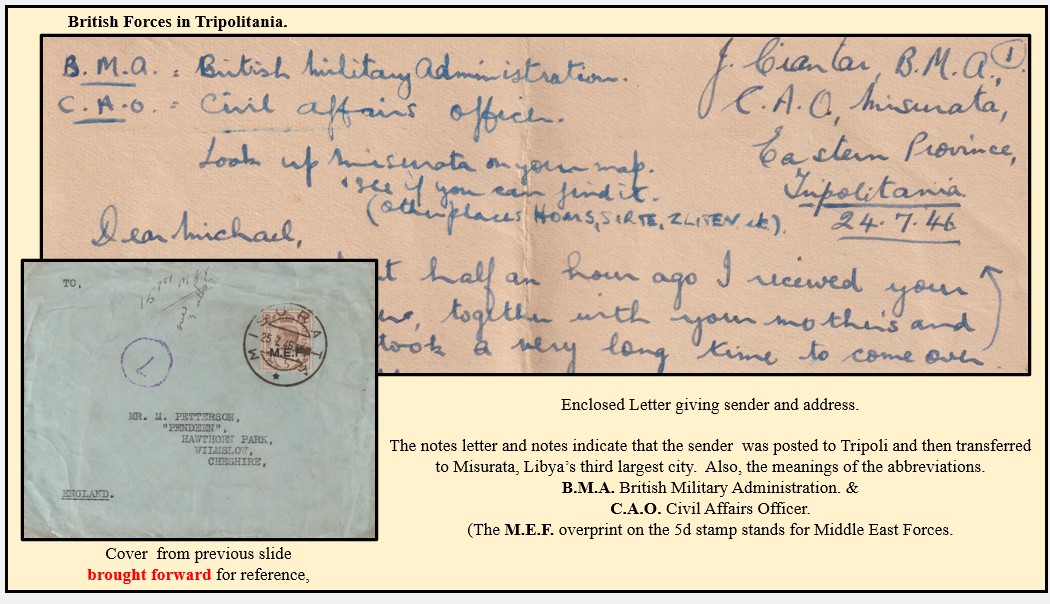 British Forces in Tripolitania.
B.M.A. = British Military Administration.
C.A.O. = Civil affairs officer.
Look up Misurata on your map.
see if you can find it.
(other places HOMS, SIRTE, ZLITEN etc).
J. Ciantar, B.M.A., 1
C.A.O, Misurata,
Eastern Province,
Tripolitania
24.7.46
Dear Michael,
half an hour ago I received your
together with your mother's and
took a very long time to come over
TO,
MISURATA
25
M.E.F.
MR. M. PETTERSON,
"PENDEEN",
HAWTHORN PARK,
WILMSLOW,
CHESHIRE,
ENGLAND.
Cover from previous slide
brought forward for reference,
Enclosed Letter giving sender and address.
The notes letter and notes indicate that the sender was posted to Tripoli and then transferred
to Misurata, Libya's third largest city. Also, the meanings of the abbreviations.
B.M.A. British Military Administration. &
C.A.O. Civil Affairs Officer.
(The M.E.F. overprint on the 5d stamp stands for Middle East Forces.